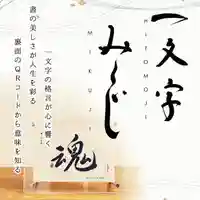 一文字
HITOMOJI
みくじ
MIKUJI
一文字の格言が心に響く
書の美しさが人生を彩る
裏面のQRコードから意味を知る
魂